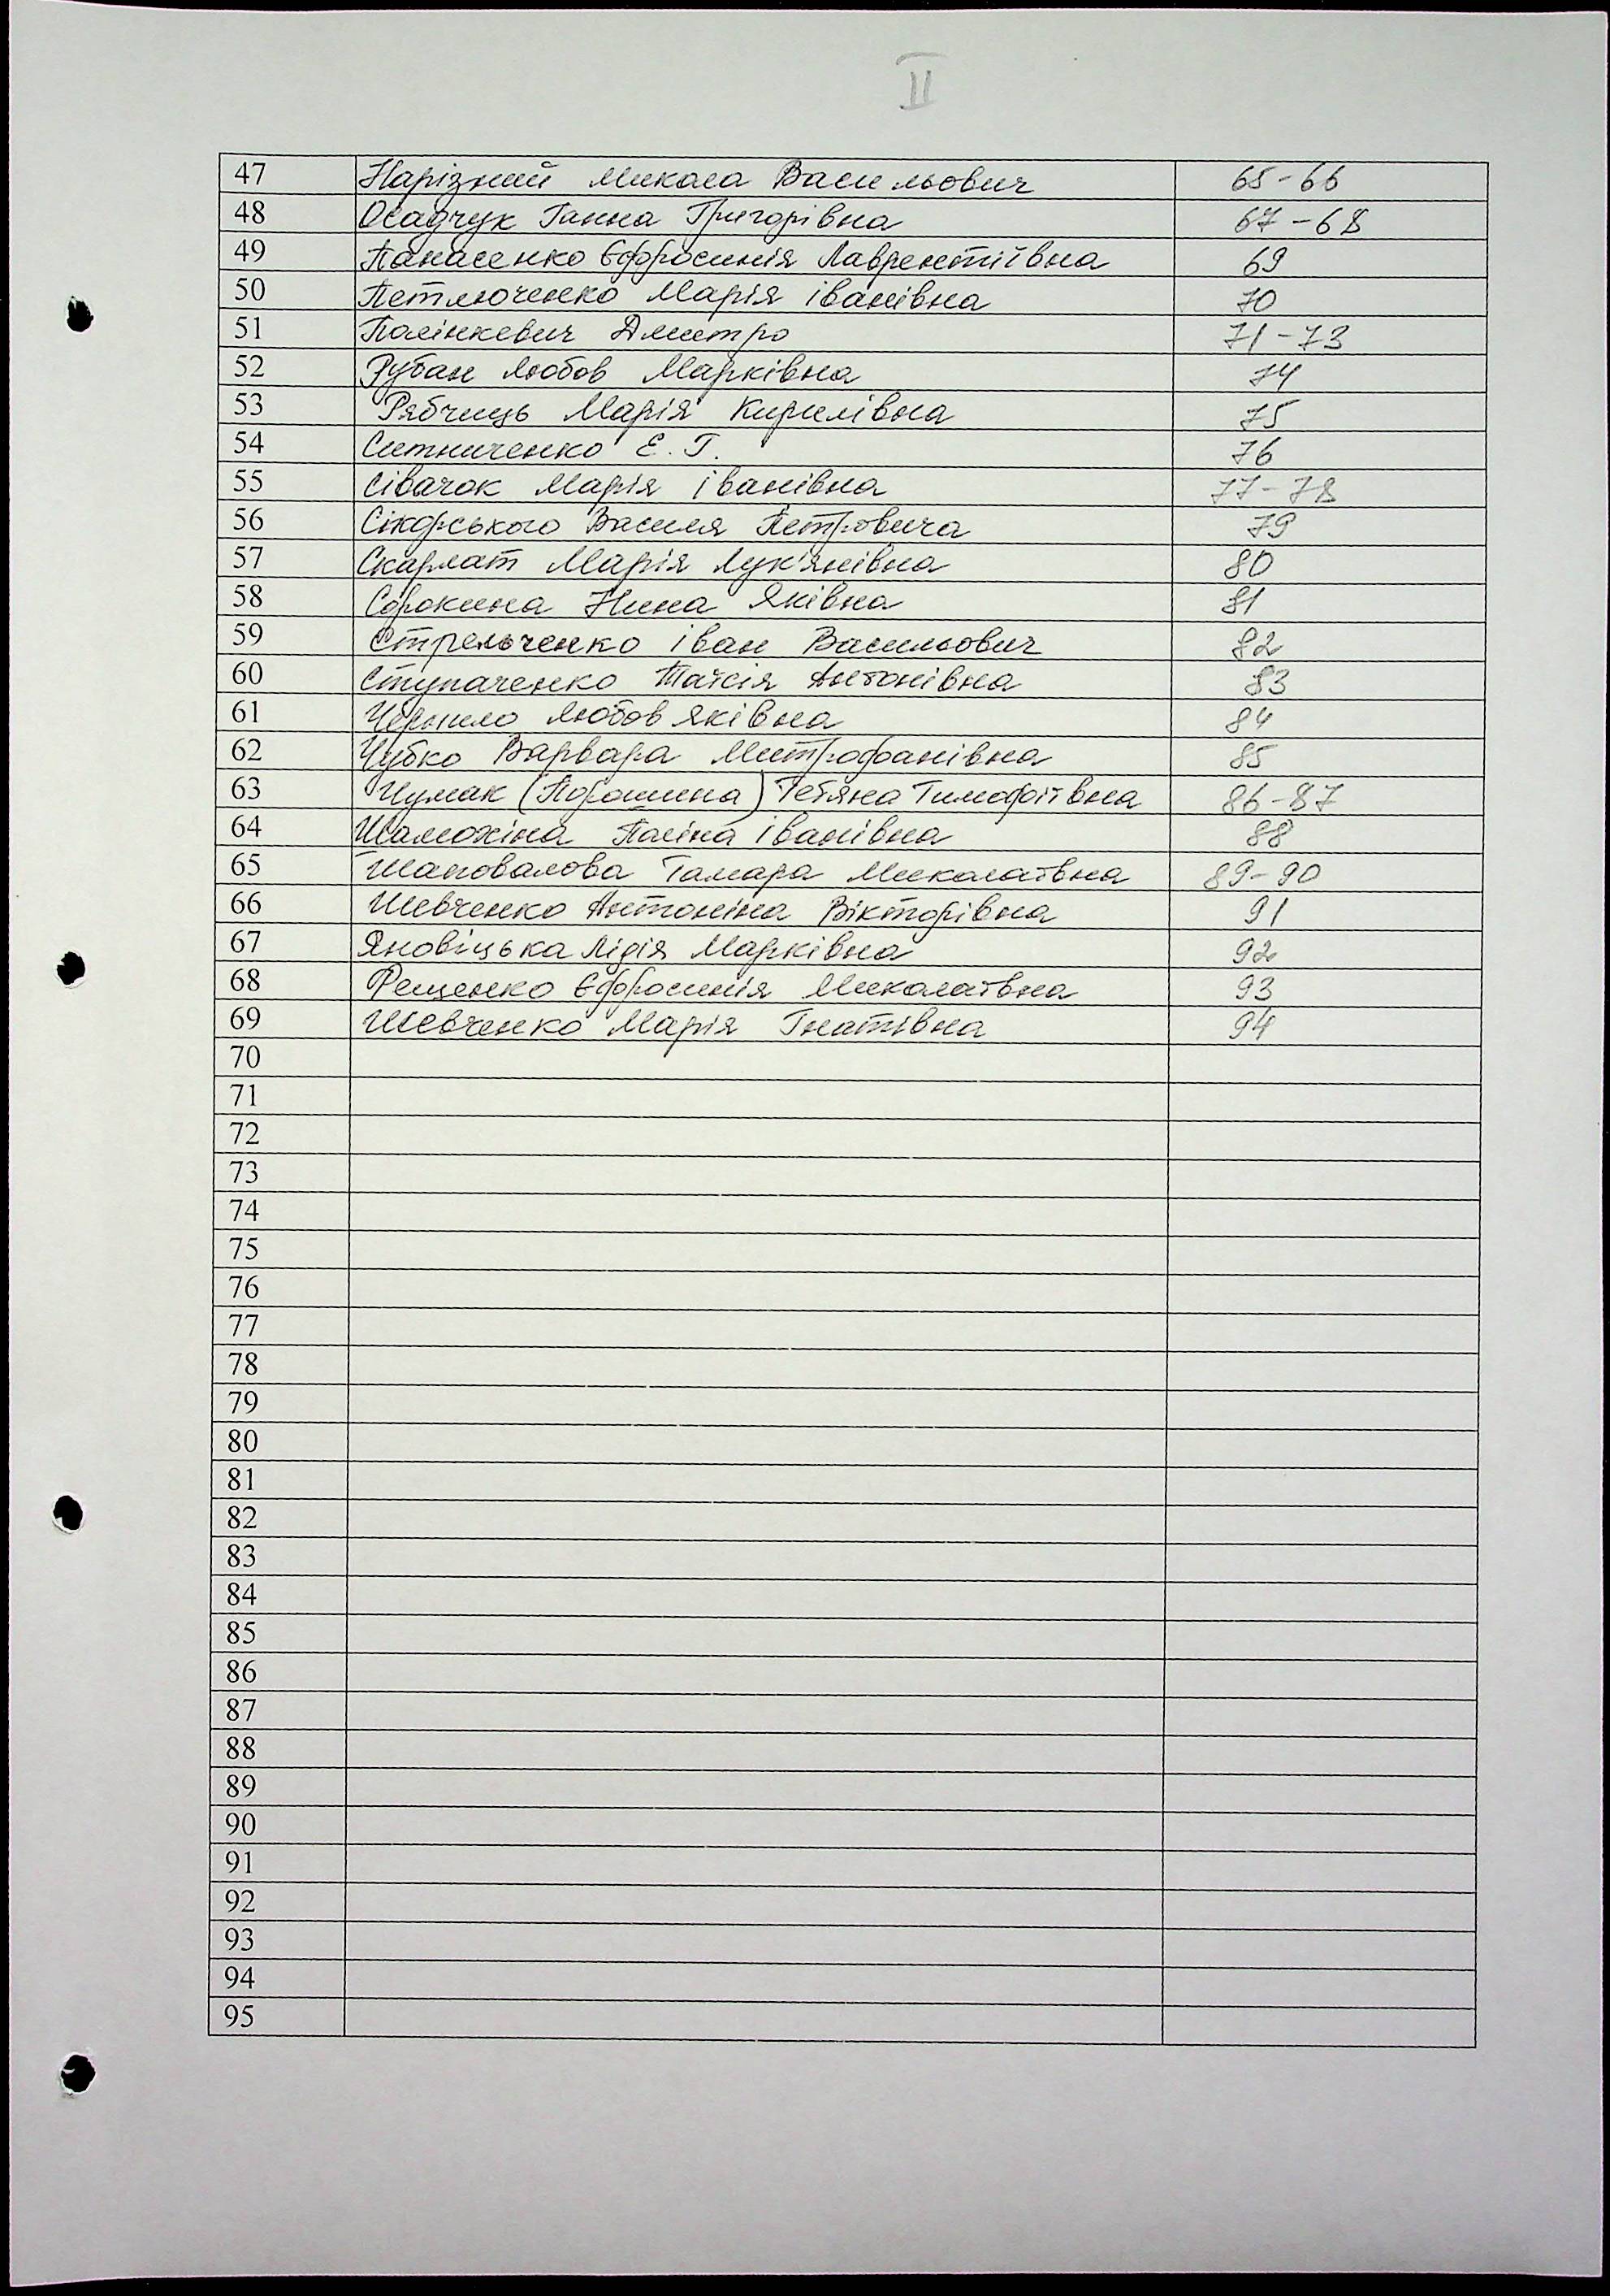 II
47 Нарізний Микола Васильович 65-66
48 Осадчук Ганна Григорівна 67-68
49 Панасенко Єфросинія Лаврентіївна 69
50 Петлюченко Марія іванівна 70
51 Полінкевич Дмитро 71-73
52 Рубан Любов Марківна 74
53 Рябчиць Марія Кирилівна 75
54 Ситниченко Е. Г. 76
55 Сівачок Марія іванівна 77-78
56 Сікорського Василя Петровича 79
57 Скарлат Марія Лук'янівна 80
58 Сорокина Нина Яківна 81
59 Стрельченко іван Васильович 82
60 Ступаченко Таїсія Антонівна 83
61 Чернило Любов Яківна 84
62 Чубко Варвара Митрофанівна 85
63 Чумак (Порошина) Тетяна Тимофіївна 86-87
64 Шамохіна Поліна іванівна 88
65 Шаповалова Тамара Миколаївна 89-90
66 Шевченко Антоніна Вікторівна 91
67 Яновіцька Лідія Марківна 92
68 Рещенко Єфросинія Миколаївна 93
69 Шевченко Марія Гнатівна 94
70
71
72
73
74
75
76
77
78
79
80
81
82
83
84
85
86
87
88
89
90
91
92
93
94
95